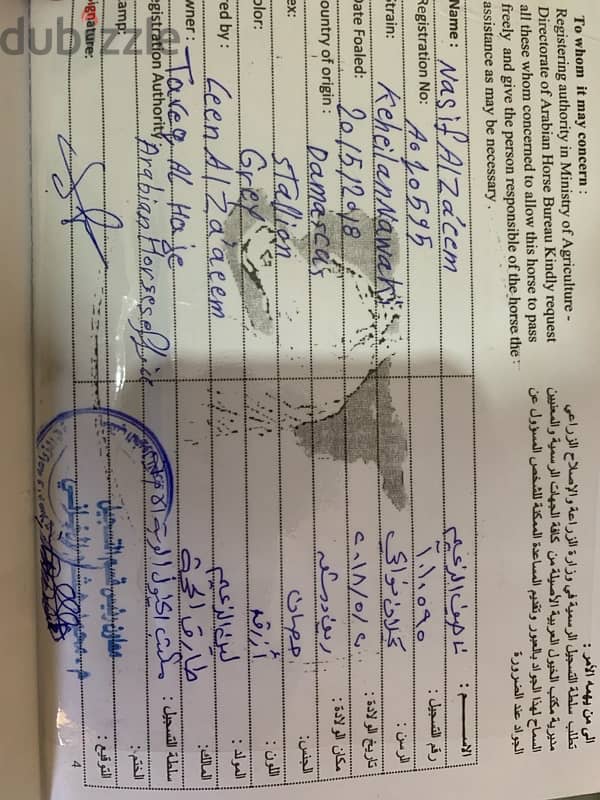 To whom it may concern :
Registering authority in Ministry of Agriculture -
Directorate of Arabian Horse Bureau Kindly request
all these whom concerned to allow this horse to pass
freely and give the person responsible of the horse the :
assistance as may be necessary .
الى من يهمه الأمر :
تطلب سلطة التسجيل الرسمية في وزارة الزراعة والإصلاح الزراعي
مديرية مكتب الخيول العربية الأصيلة من كافة الجهات الرسمية والمعنيين
السماح لهذا الجواد بالعبور وتقديم المساعدة الممكنة للشخص المسؤول عن
الجواد عند الضرورة
Name : Nasif Al Za'eem
ناصيف الزعيم الاسم :
Registration No: A010595
١١٠٥٩٥ رقم التسجيل :
Strain: Keheilan Nawaki
كحيلان نواكي الرسن :
Date Foaled: 2015/2018
تاريخ الولادة :
ountry of origin : Damascus
ريف دمشق مكان الولادة :
ex: Stallion
حصان الجنس:
olor: Grey
أزرق اللون :
red by : Leen Al Za'aeem
لين الزعيم المولد :
wner : Tareq Al Haje
طارق المالك:
egistration Authority Arabian Horses office
مكتب الخيول العربية سلطة التسجيل :
amp:
الختم :
ignature:
معاون رئيس قسم التسجيل
التوقيع :
4
dubizzle